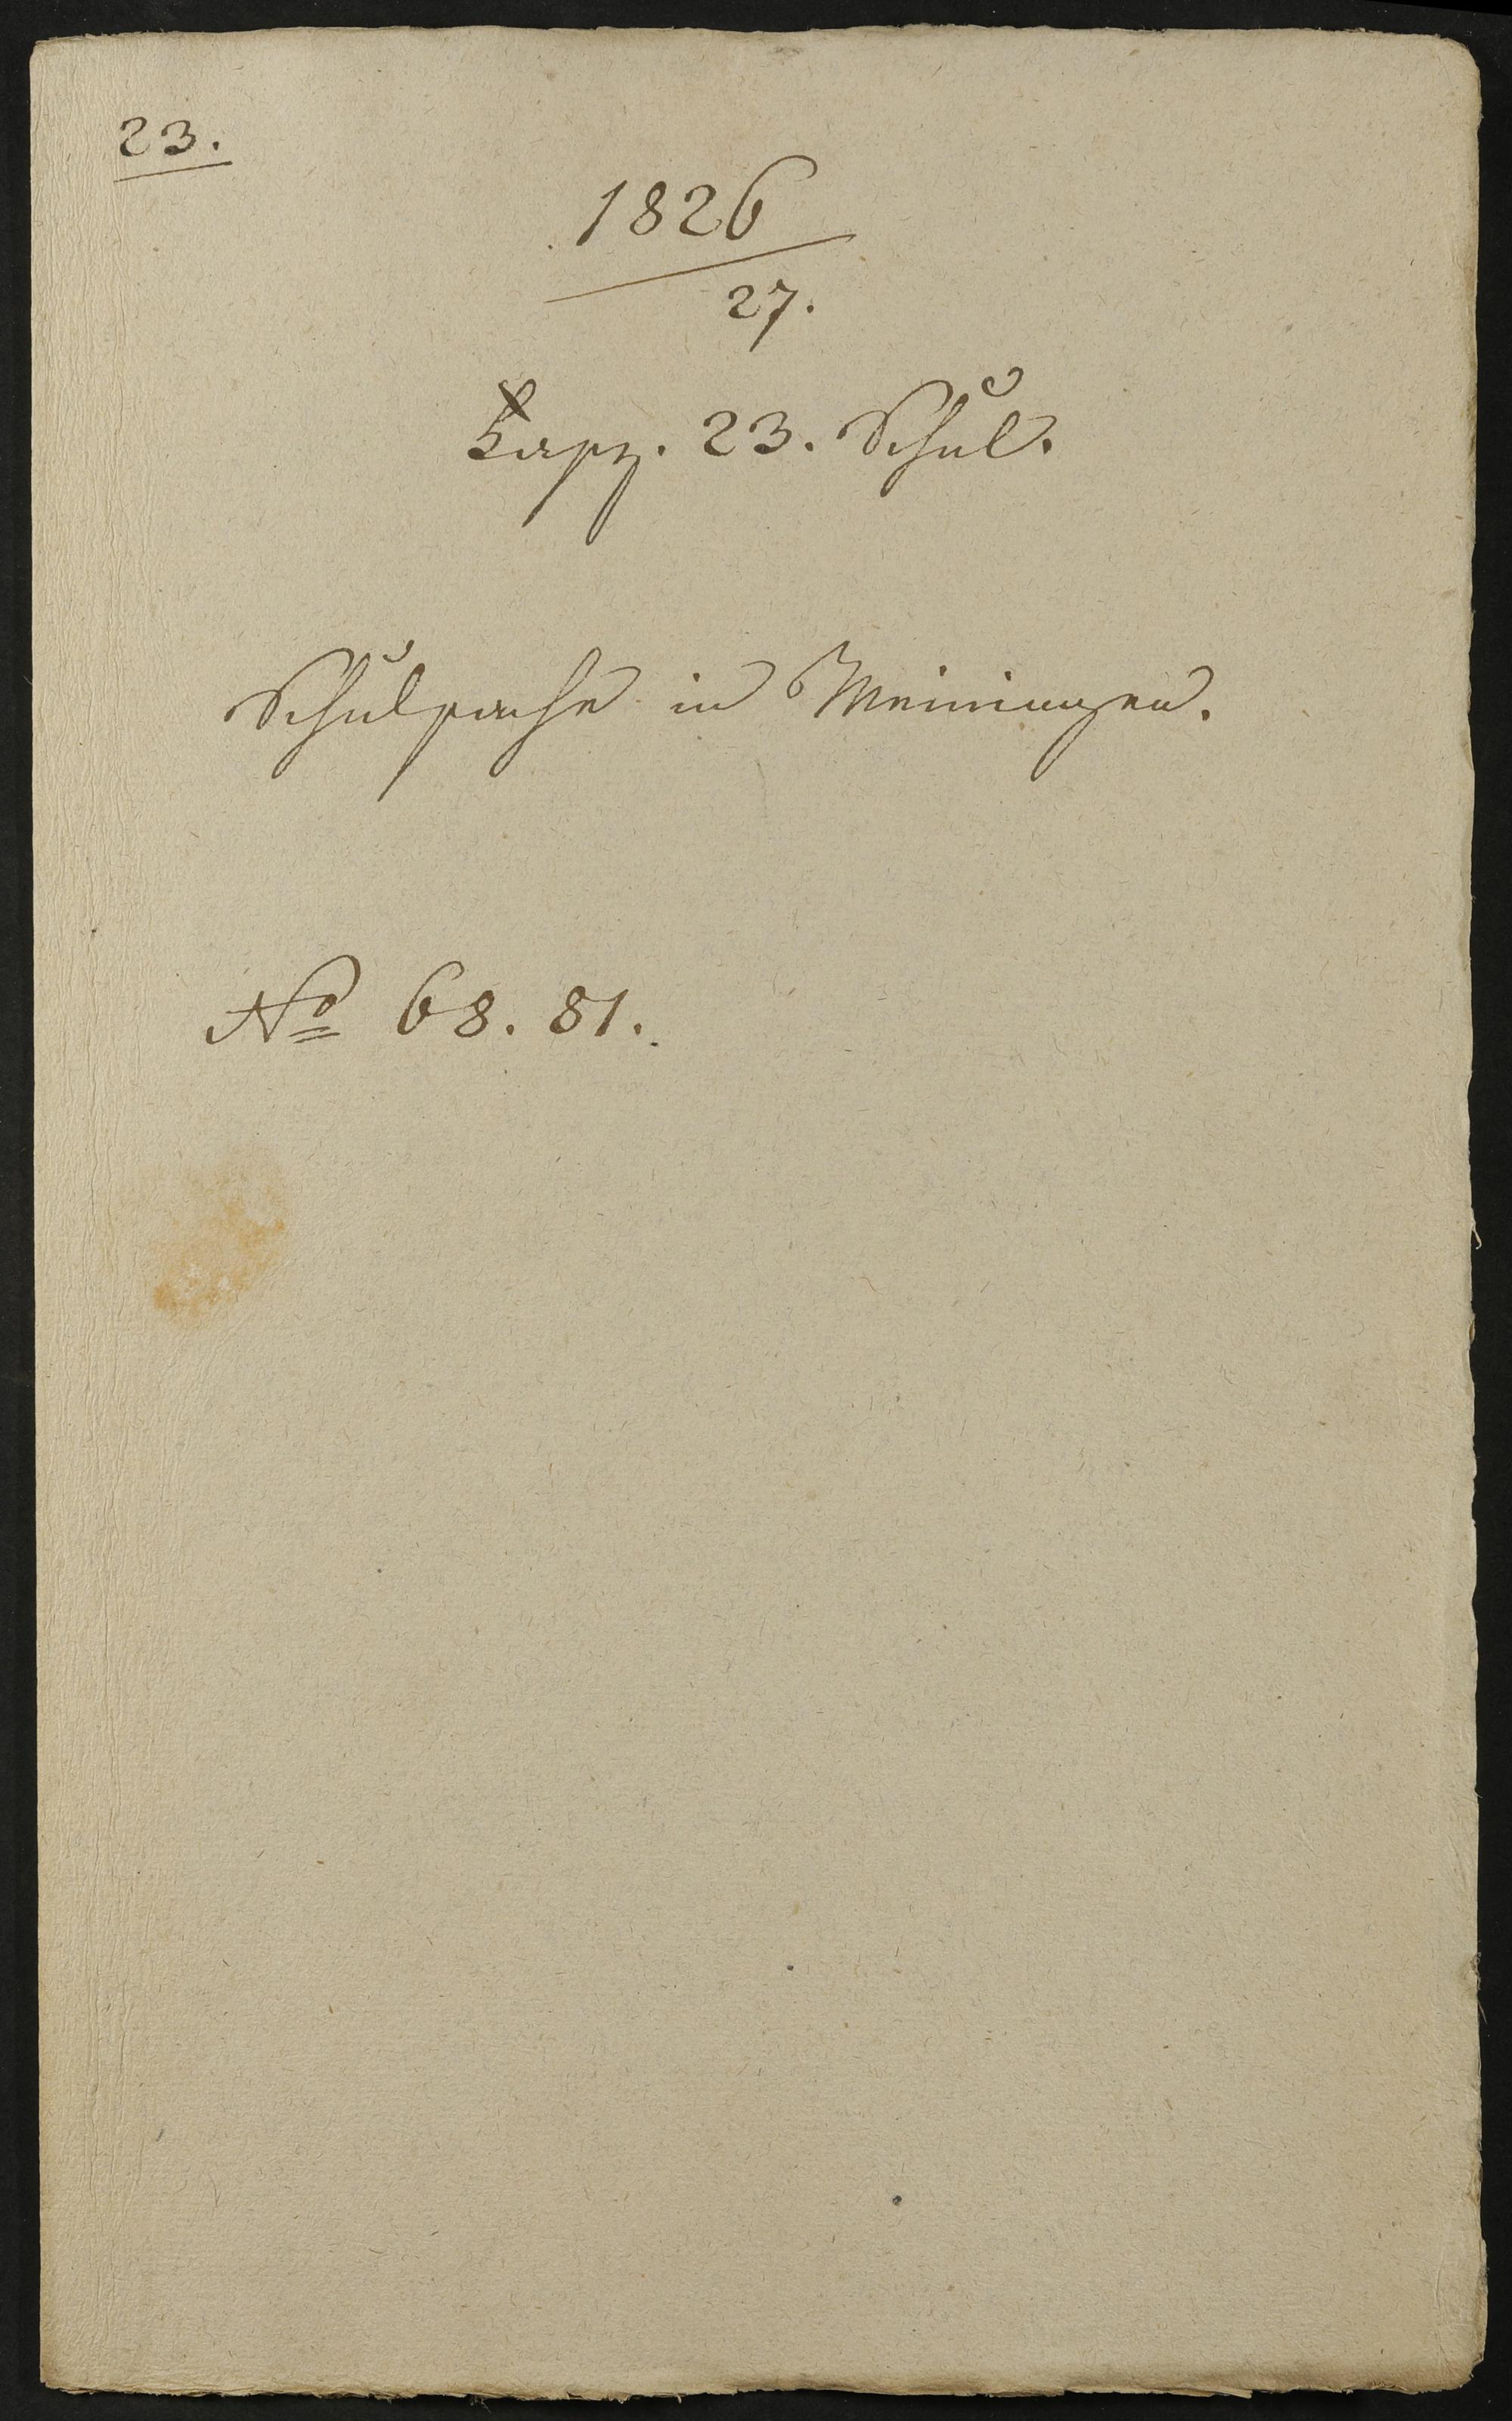 23.
1826
27.
Fasz. 23. Schul.
Schulsache in Meiningen.
No 68. 81.